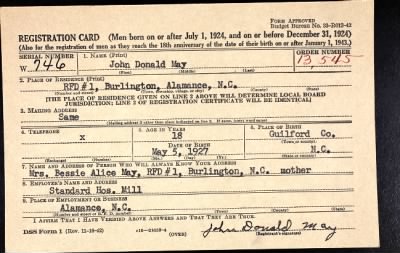 FORM APPROVED
Budget Bureau No. 33-R012-42
REGISTRATION CARD (Men born on or after July 1, 1924, and on or before December 31, 1924)
(Also for the registration of men as they reach the 18th anniversary of the date of their birth on or after January 1, 1943.)
SERIAL NUMBER 1. NAME (Print) ORDER NUMBER
W 746 John Donald May 13,545
(First) (Middle) (Last)
2. PLACE OF RESIDENCE (Print)
RFD#1, Burlington, Alamance, N.C.
(Number and street) (Town, township, village, or city) (County) (State)
[THE PLACE OF RESIDENCE GIVEN ON LINE 2 ABOVE WILL DETERMINE LOCAL BOARD
JURISDICTION; LINE 2 OF REGISTRATION CERTIFICATE WILL BE IDENTICAL]
3. MAILING ADDRESS
Same
(Mailing address if other than place indicated on line 2. If same, insert word same)
4. TELEPHONE 5. AGE IN YEARS 6. PLACE OF BIRTH
X 18 Guilford Co.
DATE OF BIRTH (Town or county)
May 5, 1927 N.C.
(Exchange) (Number) (Mo.) (Day) (Yr.) (State or country)
7. NAME AND ADDRESS OF PERSON WHO WILL ALWAYS KNOW YOUR ADDRESS
Mrs. Bessie Alice May, RFD #1, Burlington, N.C. mother
8. EMPLOYER'S NAME AND ADDRESS
Standard Hos. Mill
9. PLACE OF EMPLOYMENT OR BUSINESS
Alamance, N.C.
(Number and street or R. F. D. number) (Town) (County) (State)
I AFFIRM THAT I HAVE VERIFIED ABOVE ANSWERS AND THAT THEY ARE TRUE.
DSS Form 1 (Rev. 11-16-42) (OVER) John Donald May
(Registrant's signature)